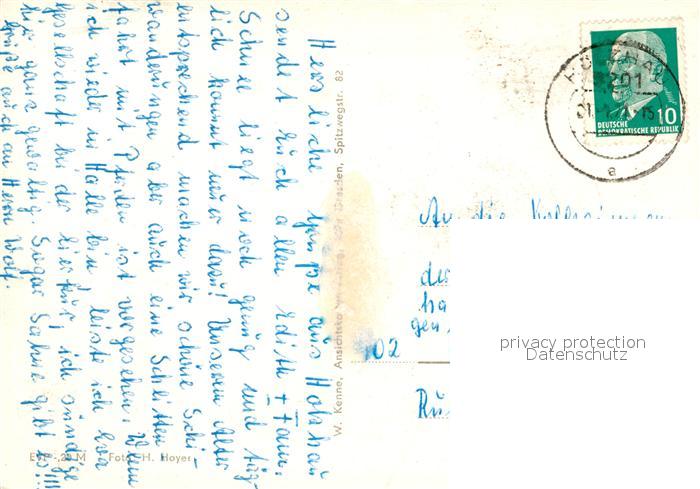 Herzliche Grüße aus Holzhau
sendet Euch allen Edith + Fam.
Schnee liegt noch genug und täg-
lich kommt neuer dazu! Unserem Alter
entsprechend machen wir schöne Schi-
wanderungen aber auch eine Schlitten
fahrt mit Pferden ist vorgesehen. Wenn
ich wieder in Halle bin, leiste ich Eva
gesellschaft bei der Eierkur; ich sündige
hier ganz gewaltig. Sogar Sahne gibt es!!!
Grüße auch an Herrn Wolf.
W. Kenne, Ansichtska Dresden, Spitzwegstr. 82
EVP -,20 M Foto: H. Hoyer
HOLZHAU
9201
a
10
DEUTSCHE
DEMOKRATISCHE REPUBLIK
An die
der
ha
gen,
102
privacy protection
Datenschutz